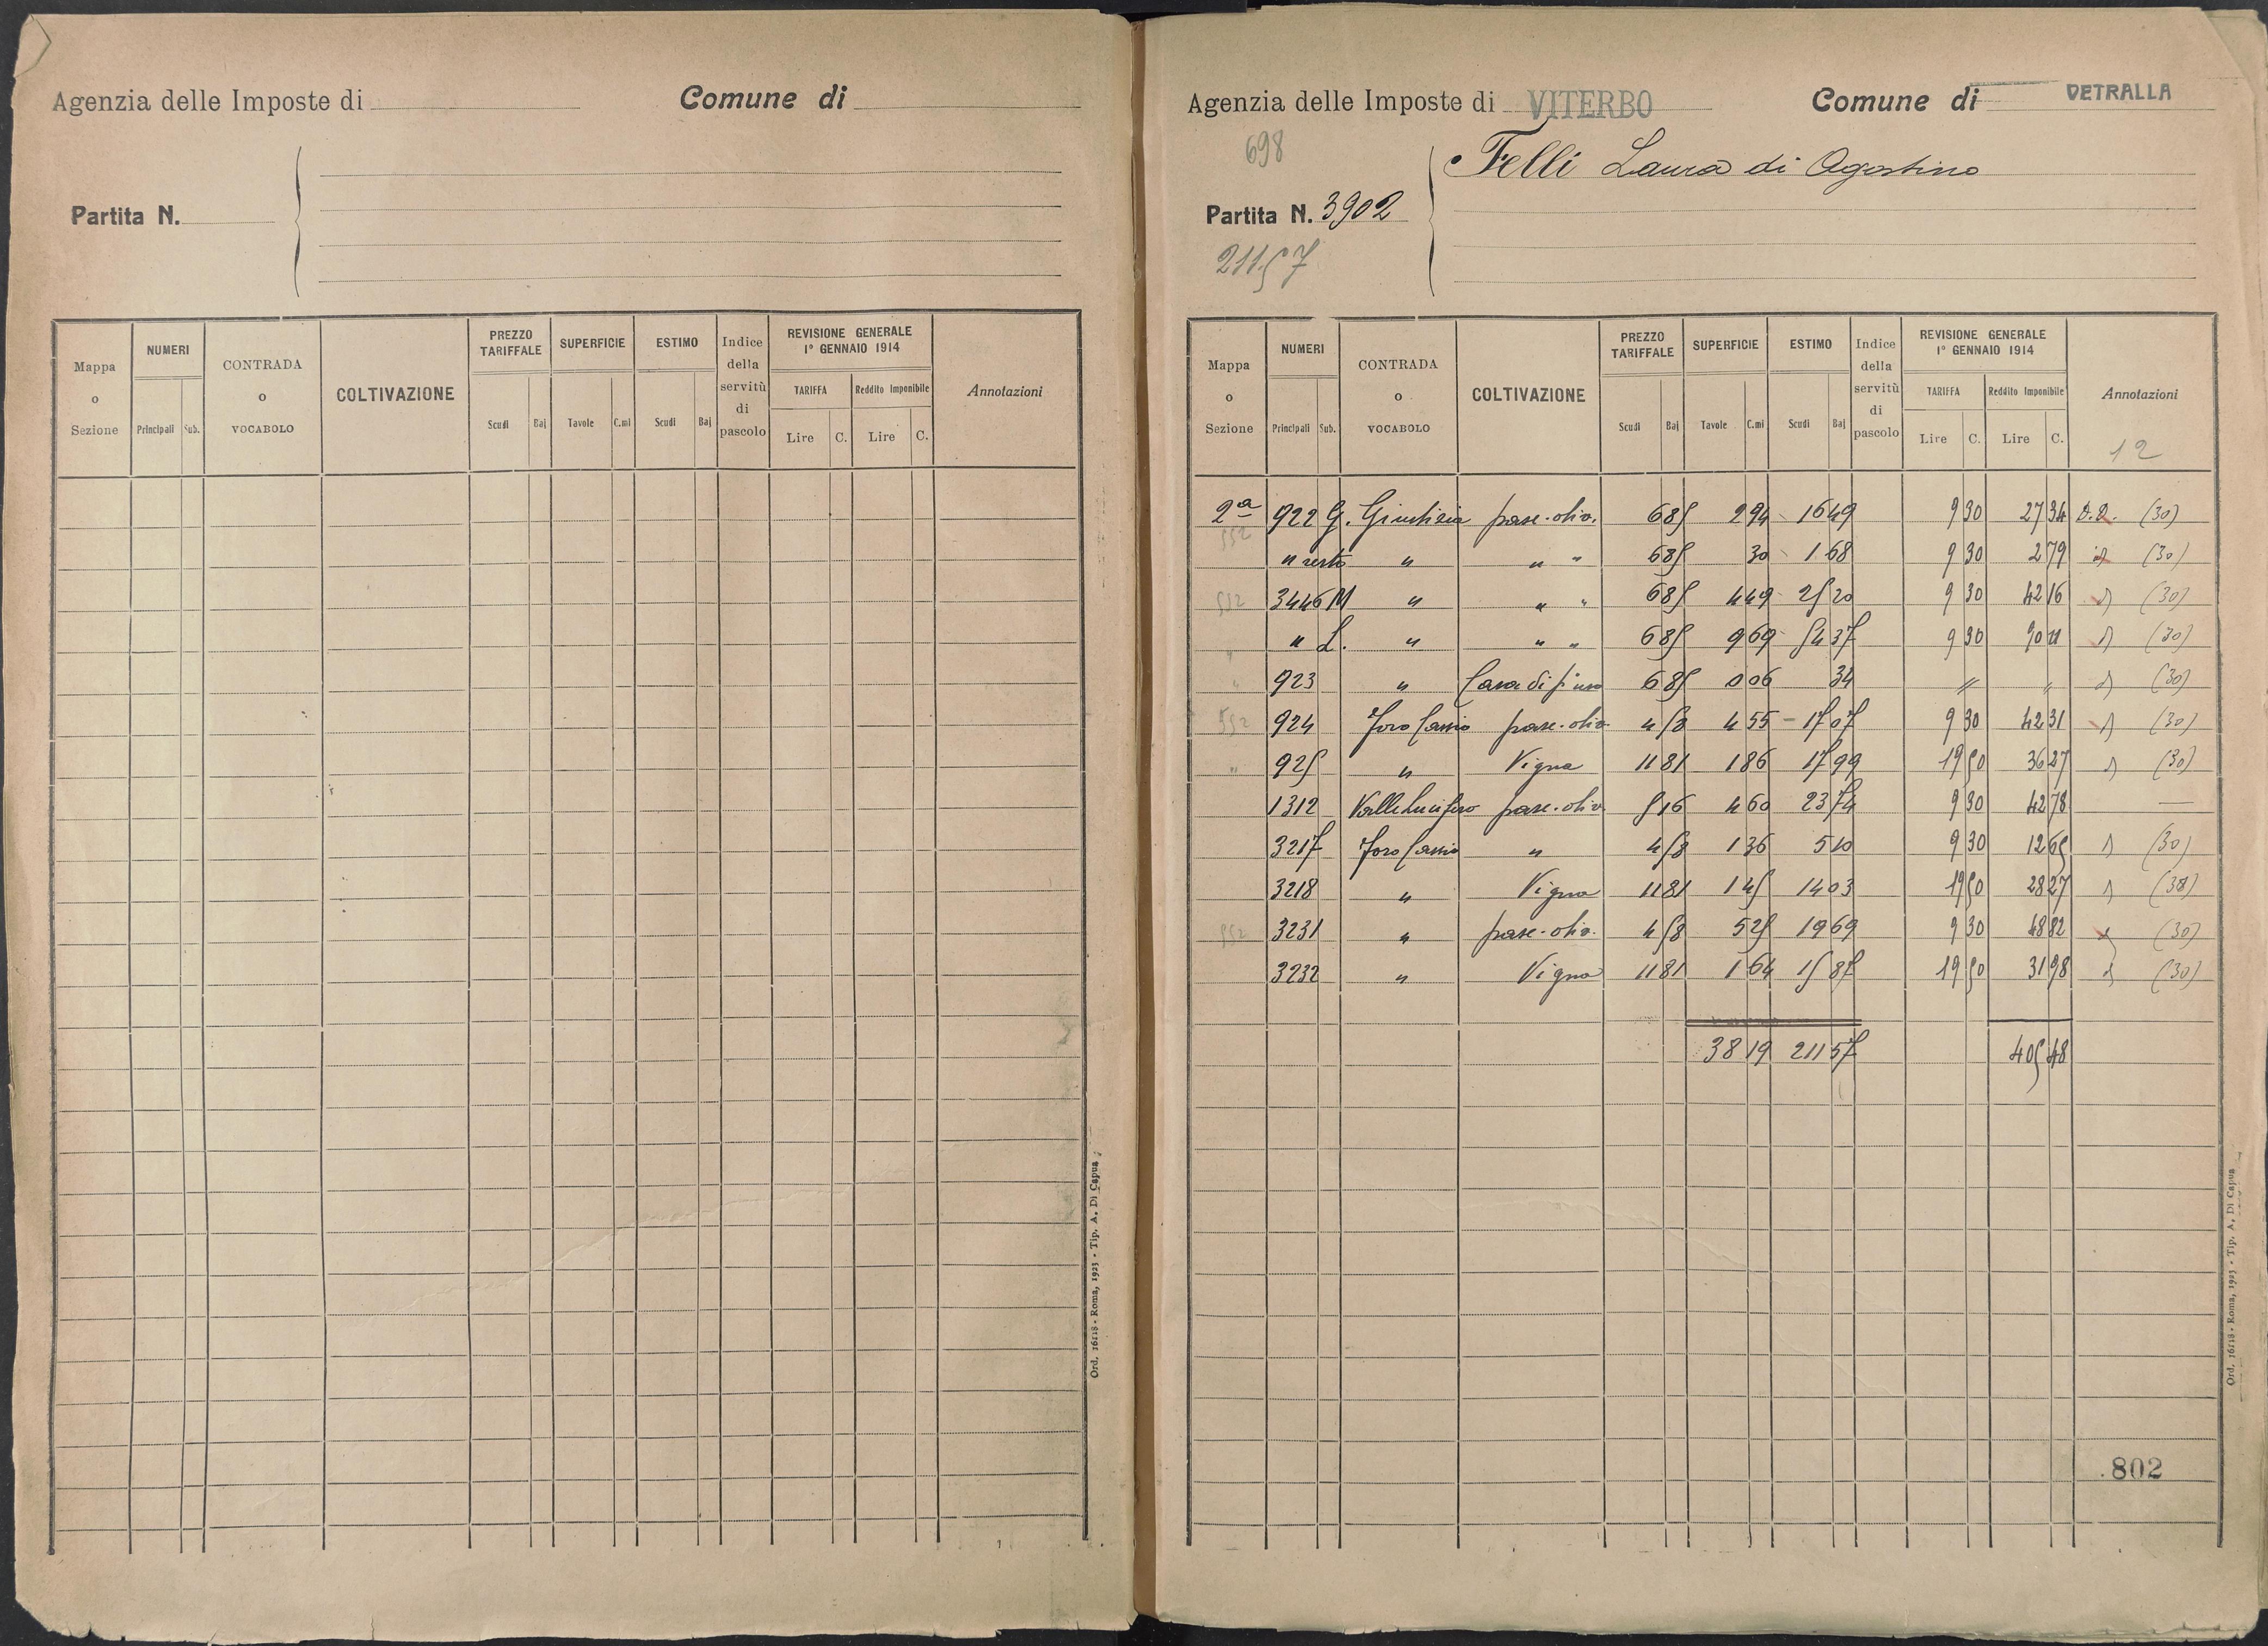 Agenzia delle Imposte di
Comune di
Partita N.
Mappa o Sezione
NUMERI
Principali Sub.
CONTRADA o VOCABOLO
COLTIVAZIONE
PREZZO TARIFFALE
Scudi Baj
SUPERFICIE
Tavole C.mi
ESTIMO
Scudi Baj
Indice della servitù di pascolo
REVISIONE GENERALE 1° GENNAIO 1914
TARIFFA
Lire C.
Reddito Imponibile
Lire C.
Annotazioni
Ord. 16118 - Roma, 1923 - Tip. A. Di Capua
Agenzia delle Imposte di VITERBO
Comune di VETRALLA
698
Felli Laura di Agostino
Partita N. 3902
21157
Mappa o Sezione
NUMERI
Principali Sub.
CONTRADA o VOCABOLO
COLTIVAZIONE
PREZZO TARIFFALE
Scudi Baj
SUPERFICIE
Tavole C.mi
ESTIMO
Scudi Baj
Indice della servitù di pascolo
REVISIONE GENERALE 1° GENNAIO 1914
TARIFFA
Lire C.
Reddito Imponibile
Lire C.
Annotazioni
12
2a 922 G. Giustizia pasc. oliv. 6 85 2 94 16 49 9 30 27 34 (30)
552
" resto " " " 6 85 30 1 68 9 30 2 79 (30)
552 3446 M " " " 6 85 4 49 25 20 9 30 42 16 (30)
" " L. " " " 6 85 9 69 54 37 9 30 90 11 (30)
" 923 " Casa di p. uso 6 85 0 06 34 " " (30)
552 924 Foro Cassio pasc. oliv. 4 58 4 55 17 07 9 30 42 31 (30)
" 925 " Vigna 11 81 1 86 17 99 19 50 36 27 (30)
1312 Valle Lucifero pasc. oliv. 5 16 4 60 23 74 9 30 42 78 —
3217 Foro Cassio " 4 58 1 36 5 10 9 30 12 65 (30)
3218 " Vigna 11 81 1 45 14 03 19 50 28 27 (30)
552 3231 " pasc. oliv. 4 58 5 25 19 69 9 30 48 82 (30)
3232 " Vigna 11 81 1 64 15 87 19 50 31 98 (30)
38 19 211 57 405 48
802
Ord. 16118 - Roma, 1923 - Tip. A. Di Capua